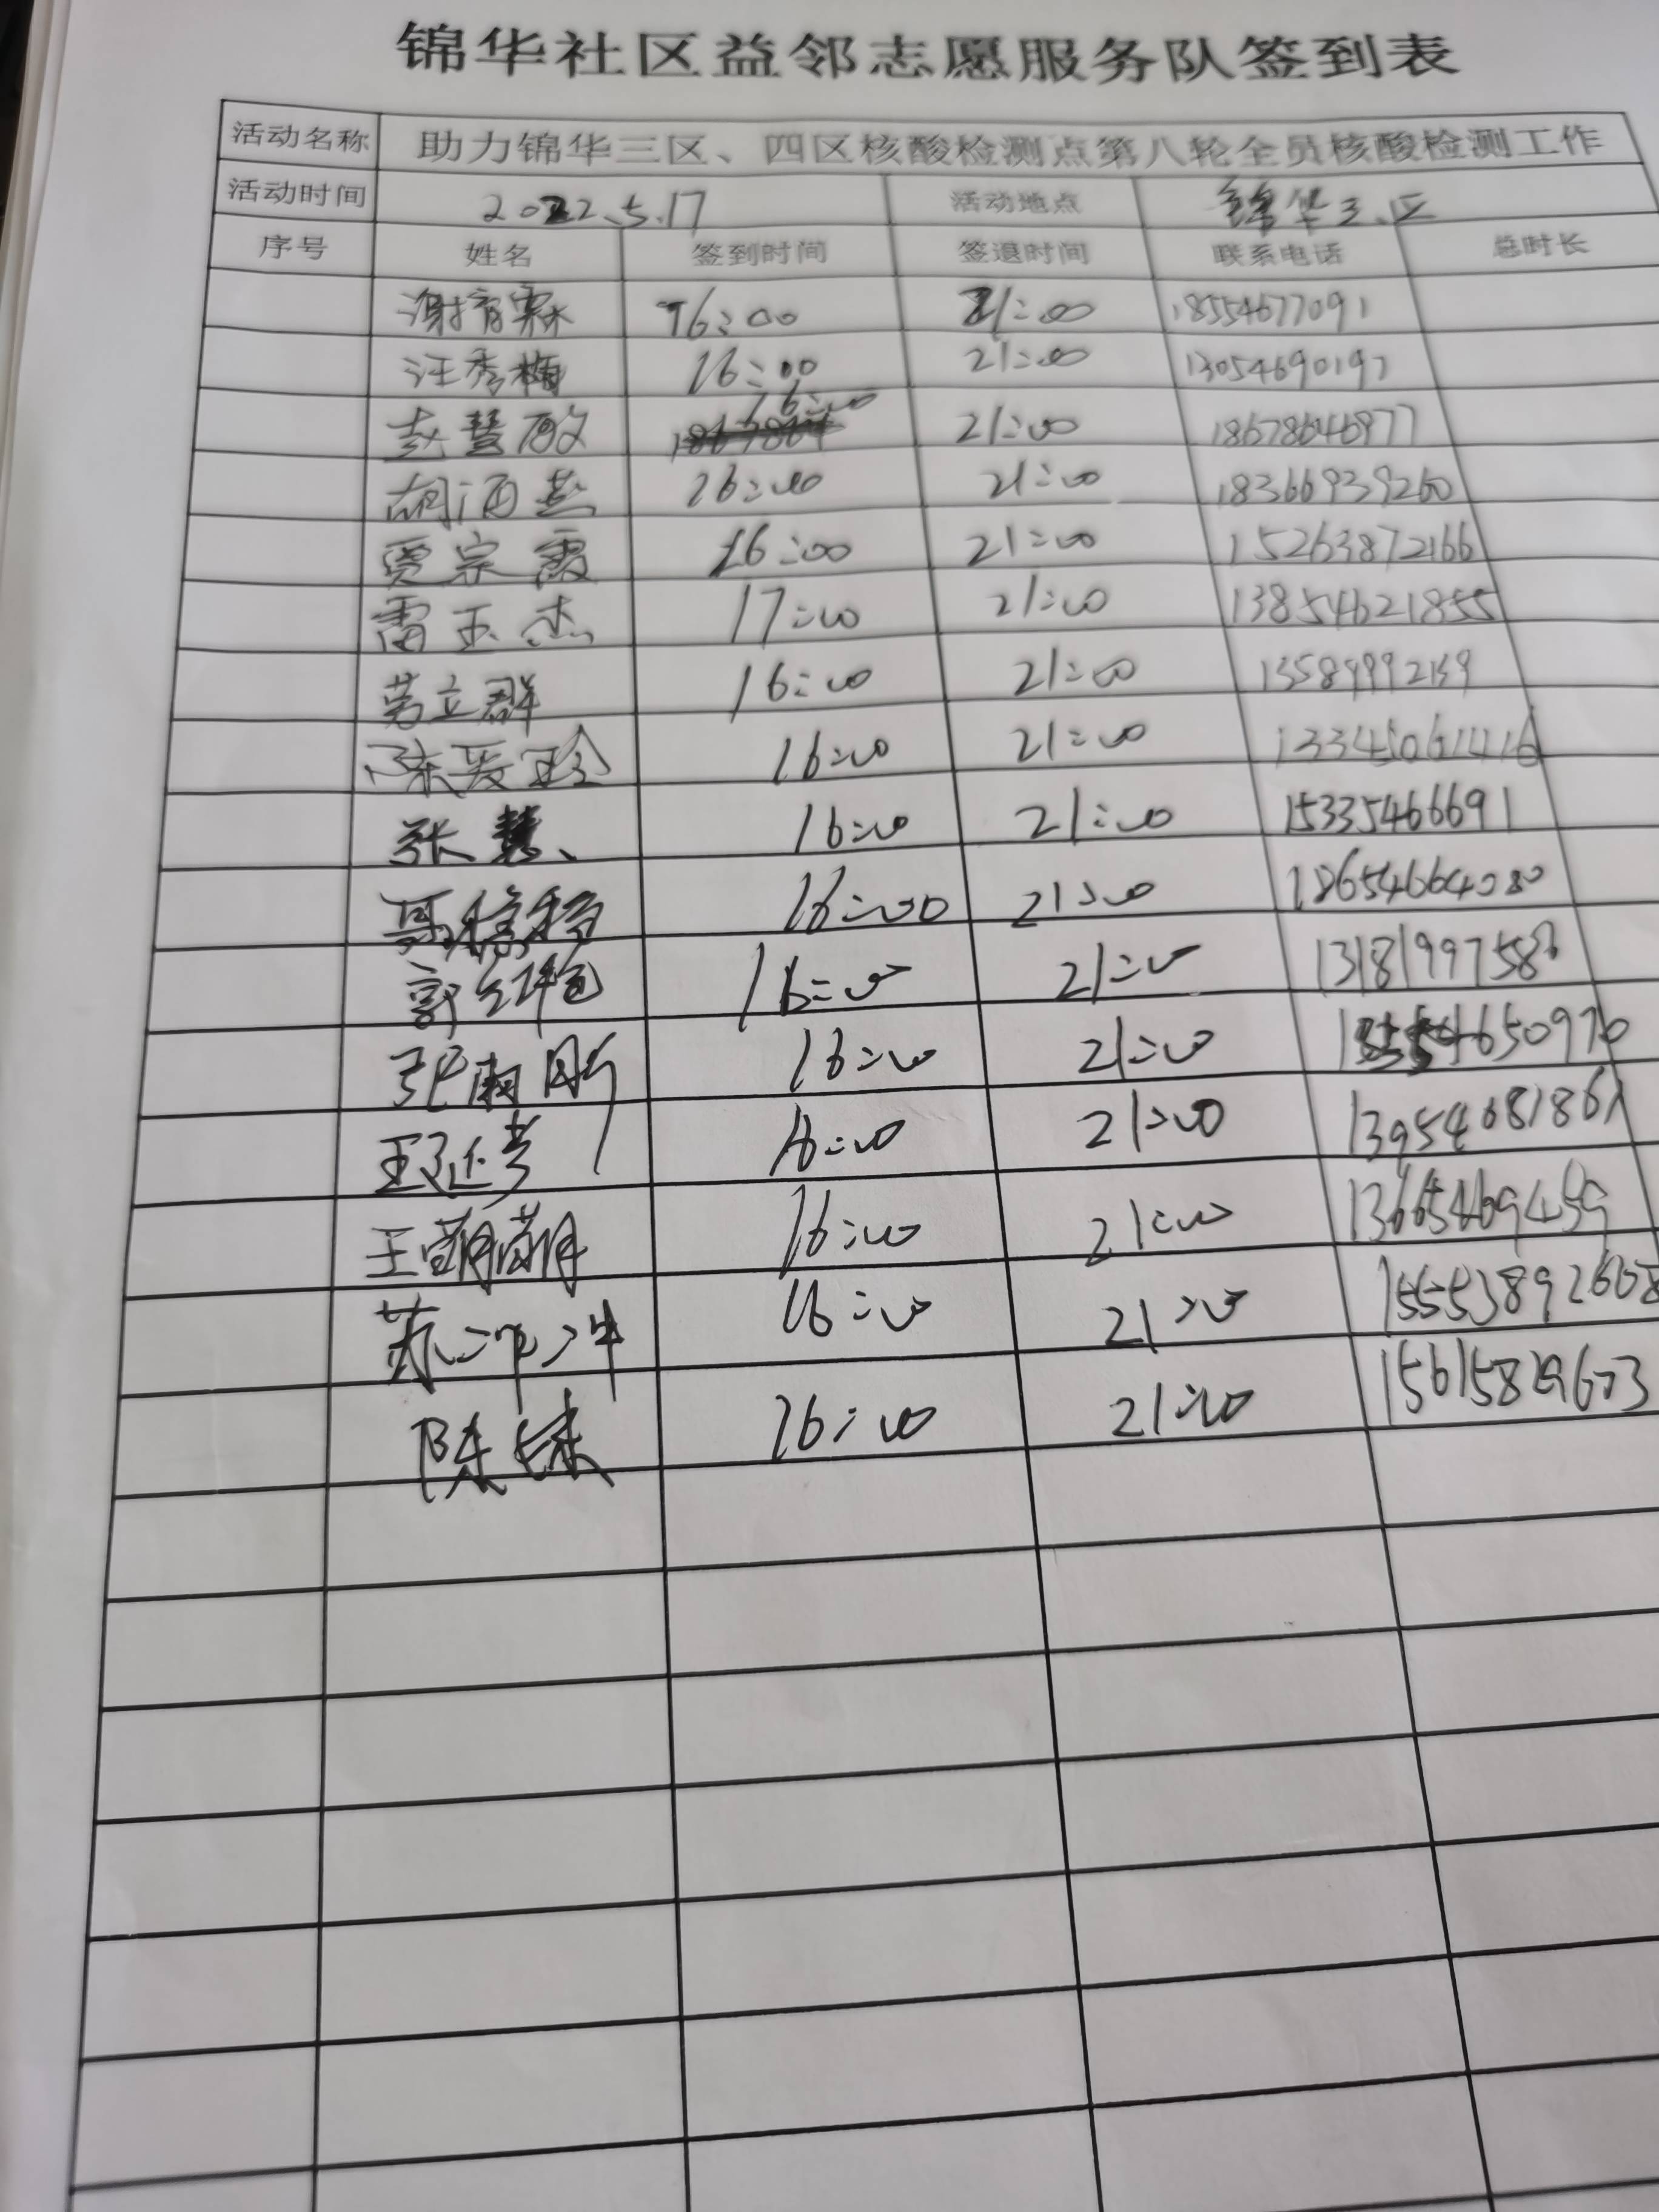 锦华社区益邻志愿服务队签到表
活动名称 助力锦华三区、四区核酸检测点第八轮全员核酸检测工作
活动时间 2022.5.17 活动地点 锦华三区
序号 姓名 签到时间 签退时间 联系电话 总时长
谢育霖 16:00 21:00 18554677091
汪秀梅 16:00 21:00 13054690197
赵慧敏 16:00 21:00 18678646977
胡酒燕 16:00 21:00 18366939260
贾宗霞 16:00 21:00 15263872166
雷玉杰 17:00 21:00 13854621855
劳立群 16:00 21:00
陈爱玲 16:00 21:00
张慧 16:00 21:00 15335466691
16:00 21:00 18654664080
郭红艳 16:00 21:00 13181997588
张雨彤 16:00 21:00
王延芳 16:00 21:00
王萌萌 16:00 21:00 13665469459
苏冲冲 16:00 21:00 15553892608
陈妹 16:00 21:00